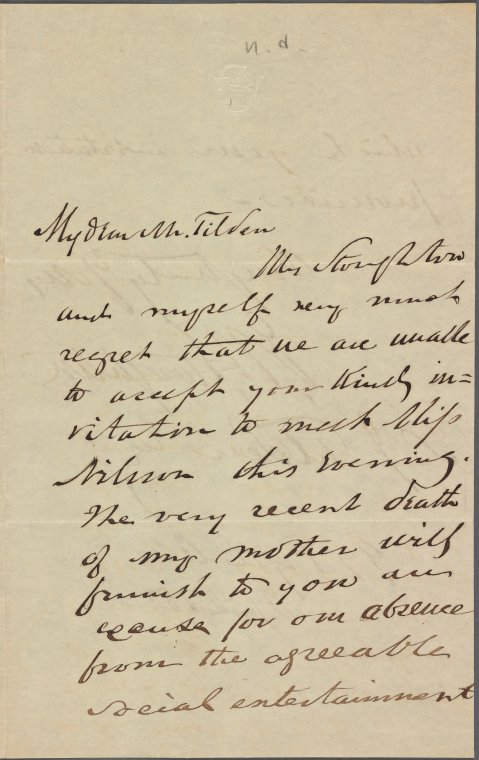 n.d.
My dear Mr. Tilden
Mrs Stoughton
and myself very much
regret that we are unable
to accept your kind in=
vitation to meet Miss
Nilsson this Evening.
The very recent death
of my mother will
furnish to you an
excuse for our absence
from the agreeable
social entertainment